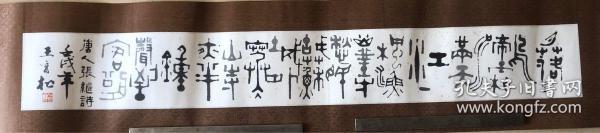 月落
烏
啼霜
滿天
江
楓
漁火
對愁
眠
姑蘇
城外
寒
山寺
夜半
鐘
聲到
客船
唐人張繼詩
壬戌年
孔夫子旧书网
www.kongfz.com